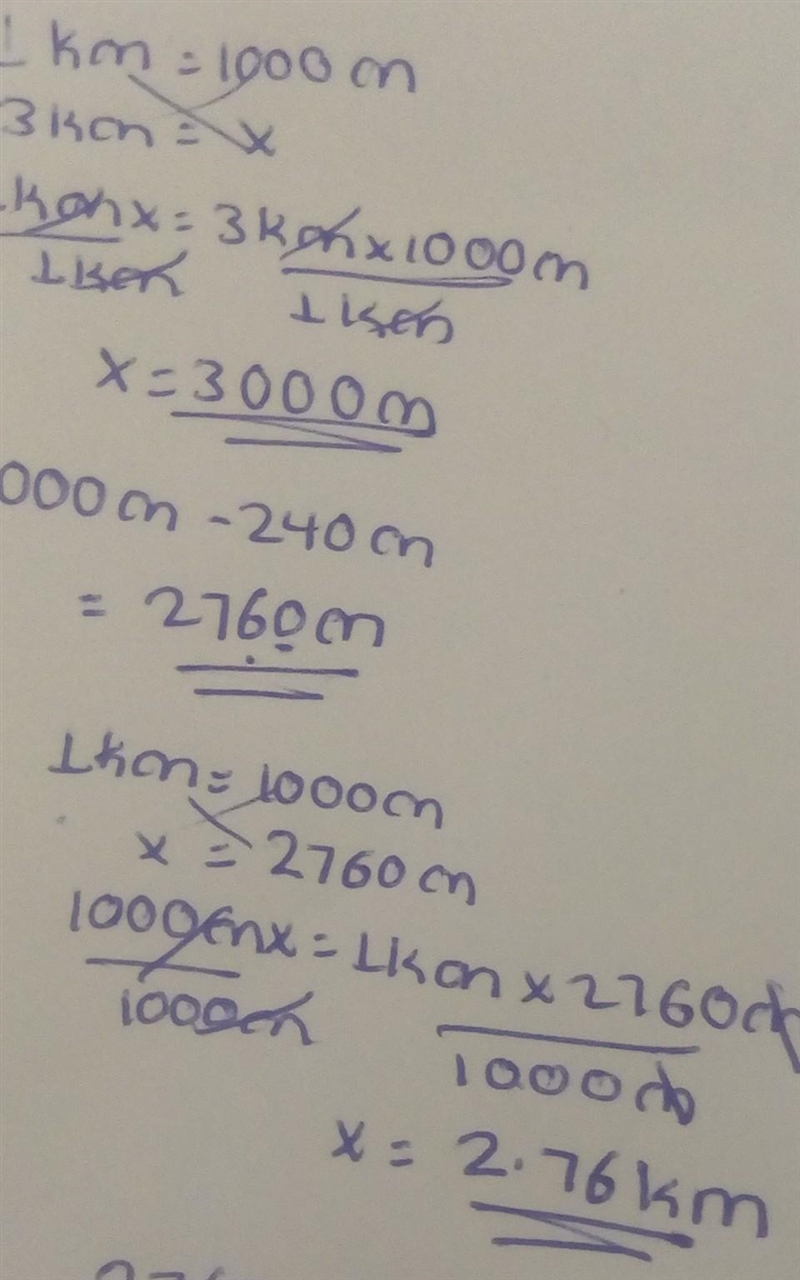 1 km = 1000m
3km = x
kmx = 3km x 1000m
1km 1km
x = 3000m
000m - 240m
= 2760m
1km = 1000m
x = 2760m
1000mx = 1km x 2760m
1000m 1000m
x = 2.76km